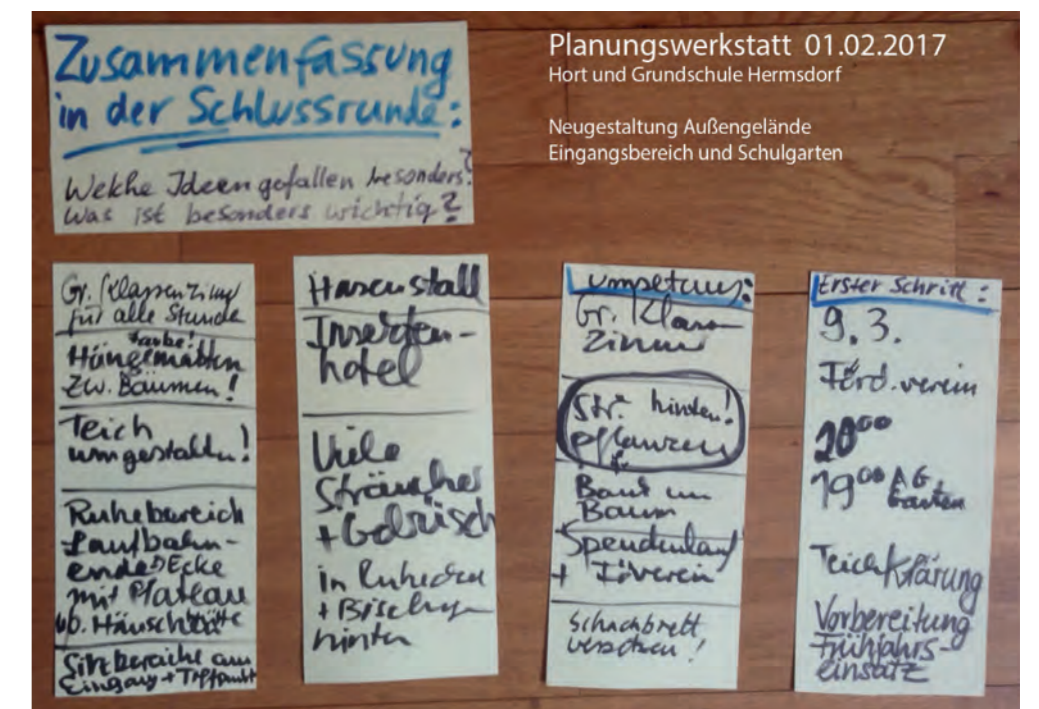 Zusammenfassung
in der Schlussrunde:
Welche Ideen gefallen besonders?
Was ist besonders wichtig?
Planungswerkstatt 01.02.2017
Hort und Grundschule Hermsdorf
Neugestaltung Außengelände
Eingangsbereich und Schulgarten
Gr. Klassenzimmer
für alle Stunde
Farbe!
Hängematten
zw. Bäumen!
Teich
umgestalten!
Ruhebereich
Laufbahn-
ende Ecke
mit Plateau
Sitzbereiche am
Eingang + Treffpunkt
Hasenstall
Insekten-
hotel
Viele
Sträucher
+ Gebüsch
in Ruheecken
+ Böschung
hinten
Umsetzung:
Gr. Klassen
Zimmer
Str. hinten!
pflanzen
Bank um
Baum
Spendenlauf
+ Föverein
Schachbrett
versetzen!
Erster Schritt:
9.3.
Förd.verein
20⁰⁰
19⁰⁰ AG
Garten
Teichklärung
Vorbereitung
Frühjahrs-
einsatz